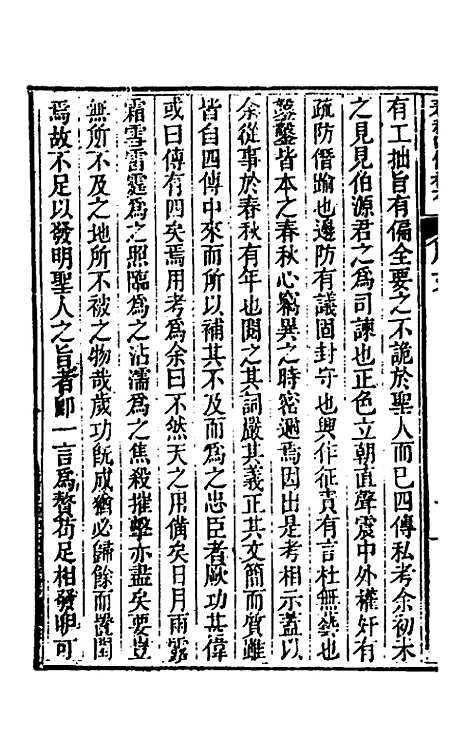 有工拙旨有偏全要之不詭於聖人而已四傳私考余初未
之見見伯源君之為司諫也正色立朝直聲震中外權奸有
疏防僭踰也邊防有議固封守也興作征責有言杜無藝也
鑿鑿皆本之春秋心竊異之時密邇焉因出是考相示蓋以
余從事於春秋有年也閱之其詞嚴其義正其文簡而質雖
皆自四傳中來而所以補其不及而為之忠臣者厥功其偉
或曰傳有四矣焉用考為余曰不然天之用備矣日月雨露
霜雪雷霆為之照臨為之沾濡為之焦殺摧擊亦盡矣要豈
無所不及之地所不被之物哉歲功旣成猶必歸餘而置閏
焉故不足以發明聖人之旨者卽一言為贅苟足相發明可